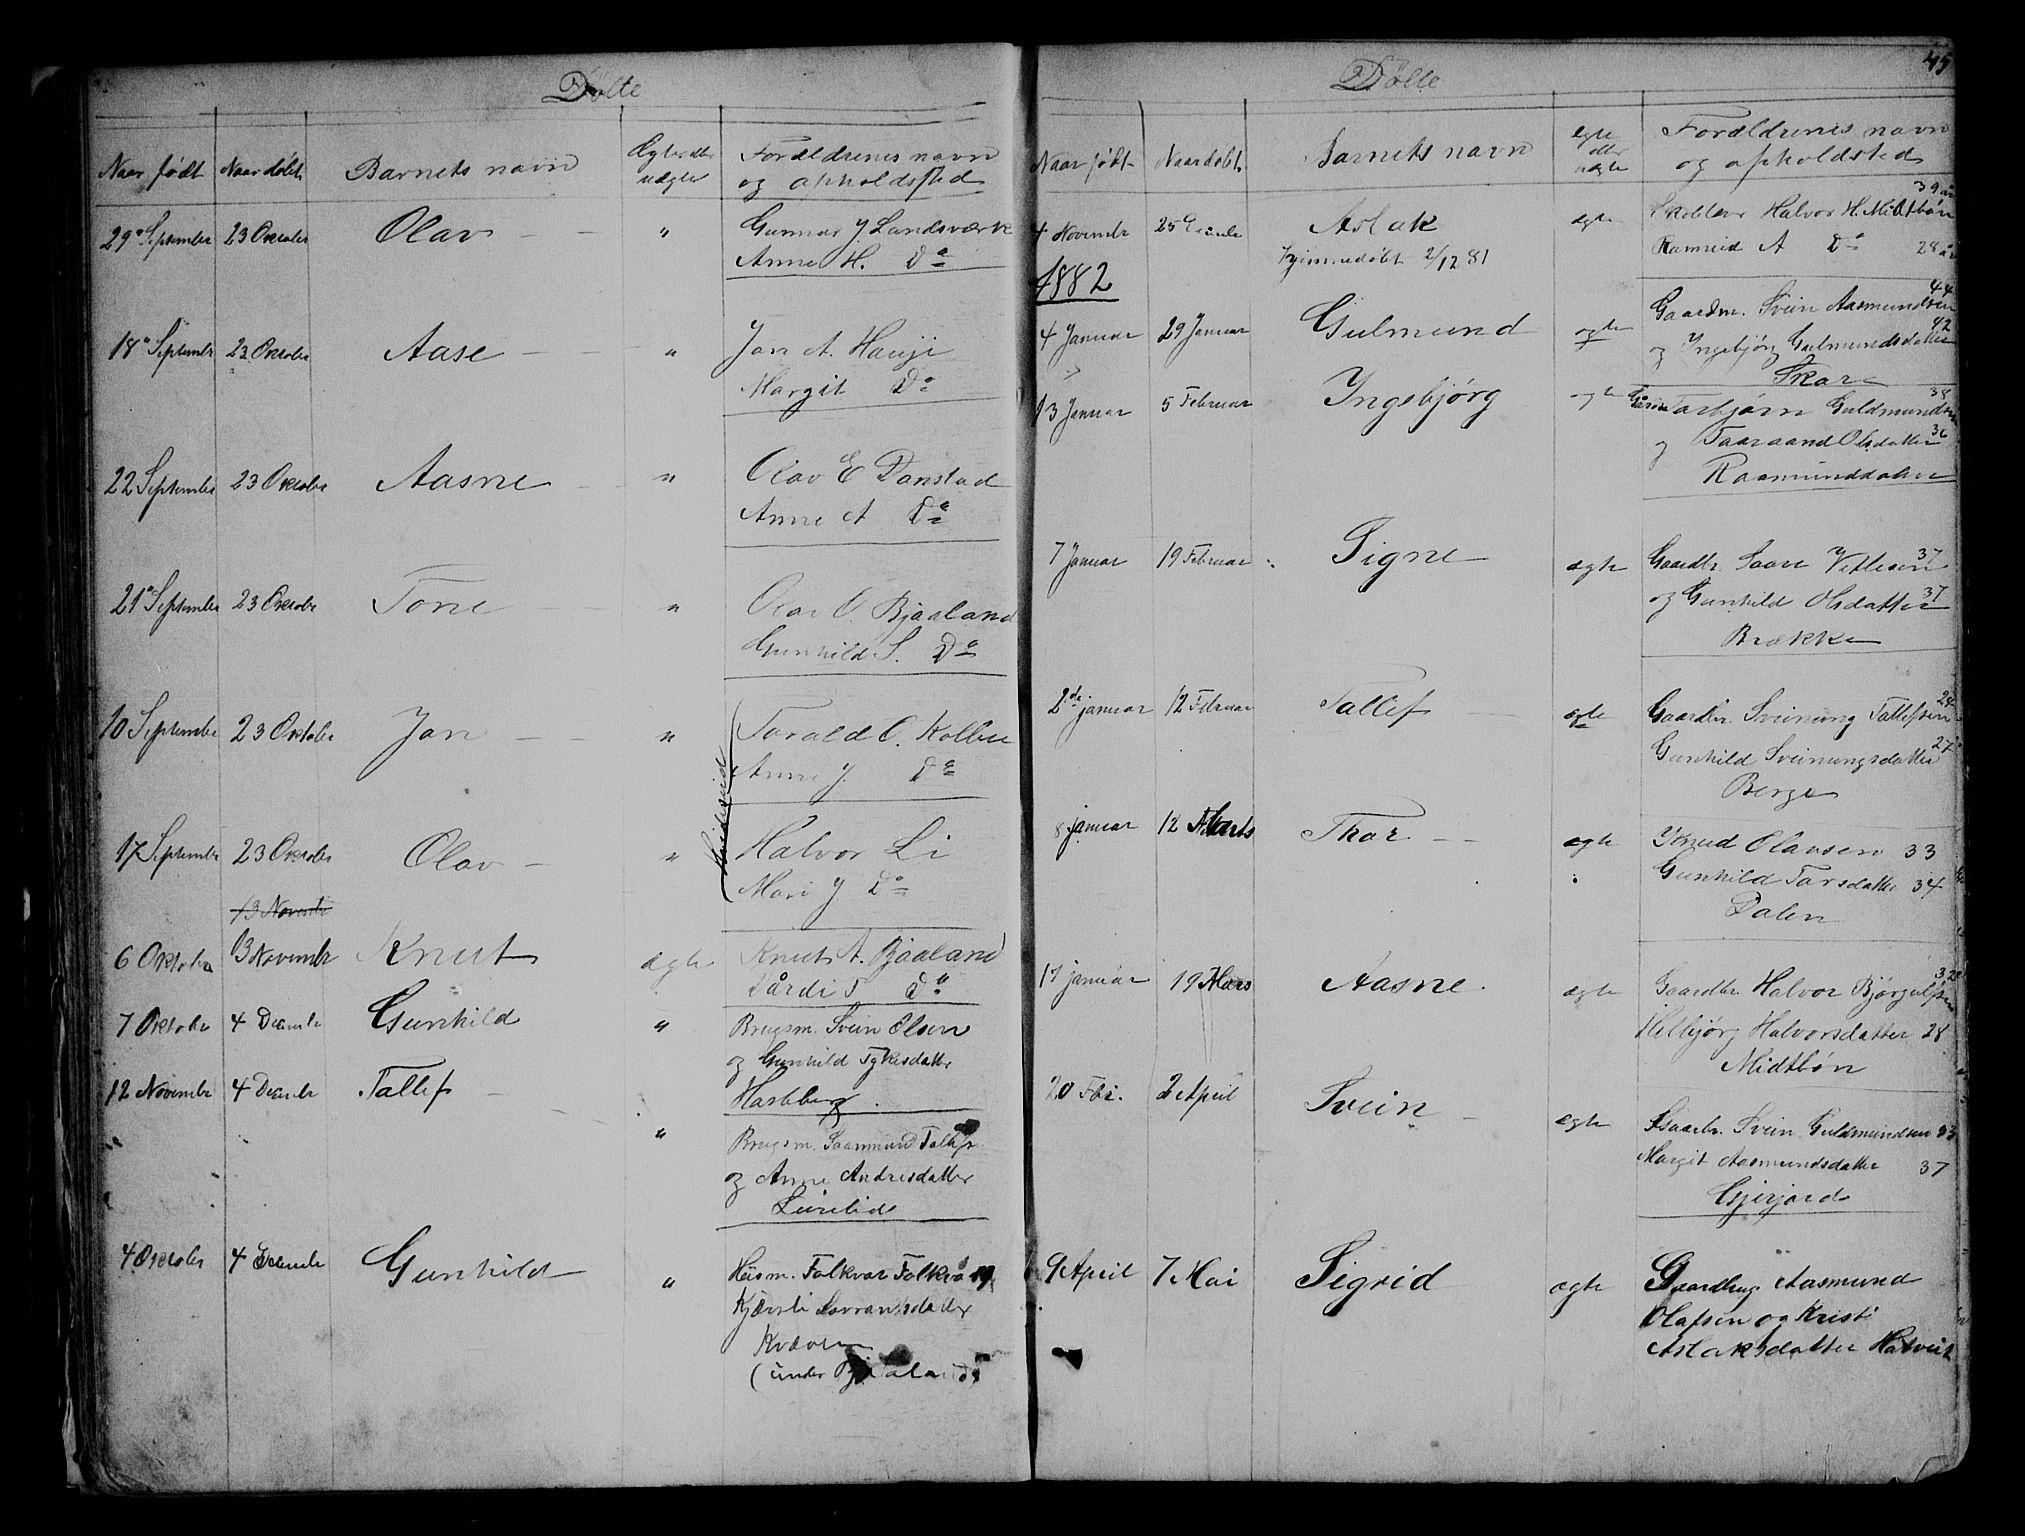 Døbte
Naar født Naar døbt Barnets navn Ægte eller uægte Forældrenes navn og opholdsted
29 September 23 Oktober Olav " Gunnar J Landsværk
Anne H. Do
18 September 23 Oktober Aase " Jon A. Haugi
Margit Do
22 September 23 Oktober Aasne " Olav E Donstad
Anne A Do
21 September 23 Oktober Tone " Olav O. Bjaaland
Gunhild S. Do
10 September 23 Oktober Jon " Torald O.
Anne J. Do
17 September 23 Oktober Olav " Halvor Li
Mari J Do
13 Novembr
6 Oktober 13 Novembr Knut ægte Knut A. Bjaaland
Dårdi T Do
7 Oktober 4 Decembr Gunhild " Brugsm. Svein Olsen
og Gunhild Tykesdatter
12 Novembr 4 Decembr Tallef
" Brugsm. Saamund Tallefs
og Anne Andresdatter
4 Oktober 4 Decembr Gunhild " Husm. Folkvar Folkva
Kjærsti Sovransdatter
Kvåven
(under Bjaaland)
45
Døbte
Naar født Naar døbt Barnets navn ægte eller uægte Forældrenes navn og opholdsted
4 November 25 Decembr Aslak ægte Halvor H. Midtbøn 39 år
hjemmedøbt 2/12 81 A Do 28 år
1882
4 Januar 29 Januar Gulmund ægte Gaardm. Svein Aasmundsen 44
og Ingebjørg Gulmundsdatter 42
Skare
13 Januar 5 Februar Ingebjørg ægte Torbjørn Guldmundsen 38
og Taaraand Olsdatter 36
7 Januar 19 Februar Signe ægte Gaardbr. Saave Vetlesen 37
og Gunhild Olsdatter 37
Brække
2de januar 12 Februar Tallef ægte Gaardbr. Sveinung Tallefsen 24
Gunhild Sveinungsdatter 27
Berge
8 januar 12 Marts Thor ægte Knud Olavsen 33
Gunhild Torsdatter 34
Dalen
17 januar 19 Mars Aasne ægte Gaardbr Halvor Bjørgulfsen 32
Helbjørg Halvorsdatter 28
Midtbøn
20 Feb. 2 April Svein ægte Gaarbr. Svein Guldmundsen 33
Margit Aasmundsdatter 37
9 April 7 Mai Sigrid ægte Gaardbrug. Aasmund
Olafsen og Kristi
Aslaksdatter Hatveit